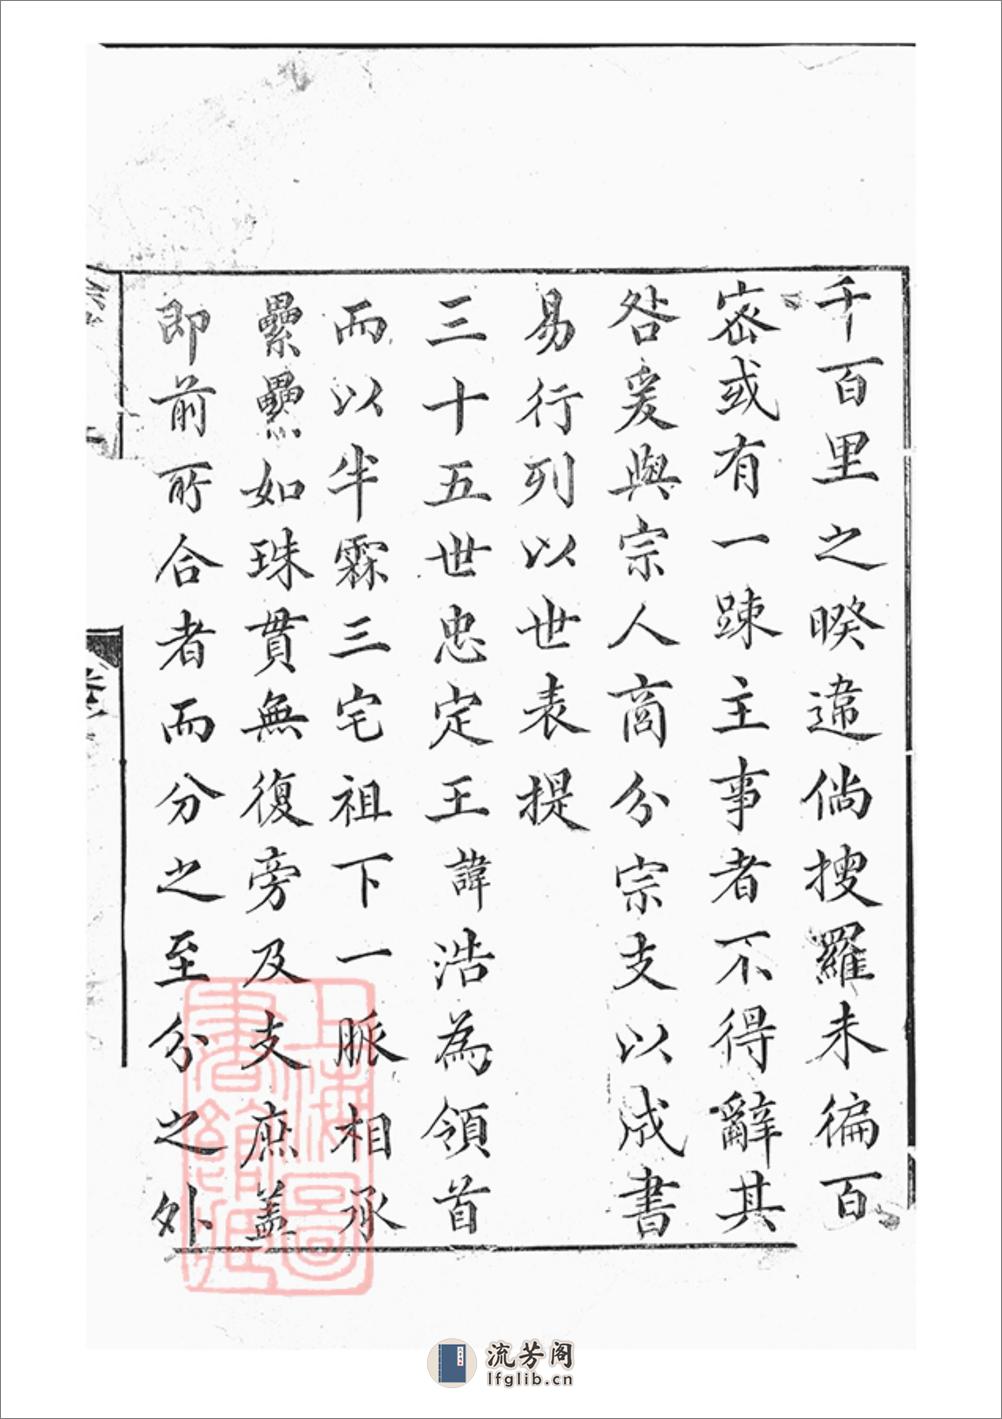 千百里之暌違倘搜羅未徧百
宻或有一踈主事者不得辭其
咎爰與宗人商分宗支以成書
易行列以世表提
三十五世忠定王諱浩為領首
而以半霖三宅祖下一脈相承
纍纍如珠貫無復旁及支庶蓋
即前所合者而分之至分之外
上海圖書館藏
流芳阁
lfglib.cn